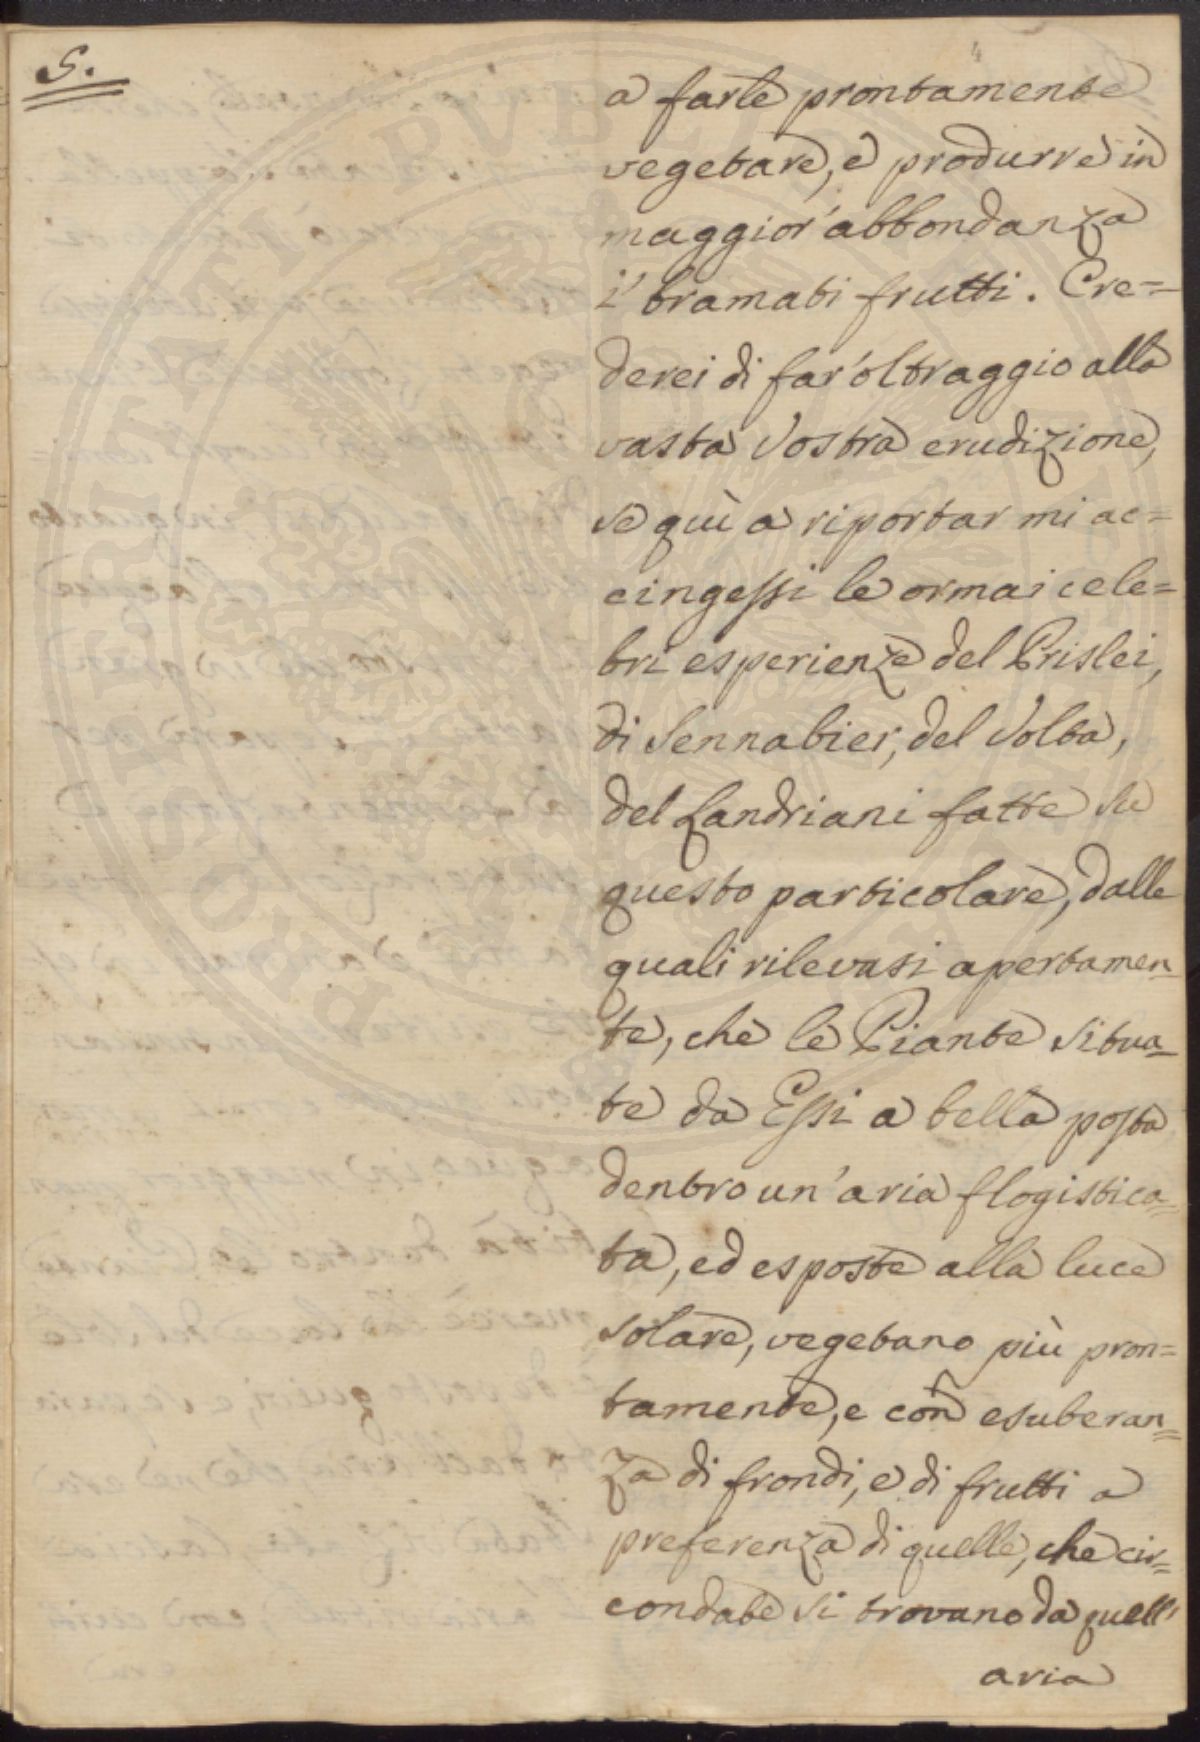 5.
4
a farle prontamente
vegetare, e produrre in
maggior' abbondanza
i' bramati frutti. Cre=
derei di far' oltraggio alla
vasta Vostra erudizione,
se quì a riportar mi ac=
cingessi le ormai cele=
bri esperienze del Prislei,
di Sennabier, del Volta,
del Landriani fatte su
questo particolare, dalle
quali rilevasi apertamen=
te, che le Piante situa=
te da Essi a bella posta
dentro un' aria flogistica=
ta, ed esposte alla luce
solare, vegetano più pron=
tamente, e con esuberan=
za di frondi, e di frutti a
preferenza di quelle, che cir=
condate si trovano da quell'
aria